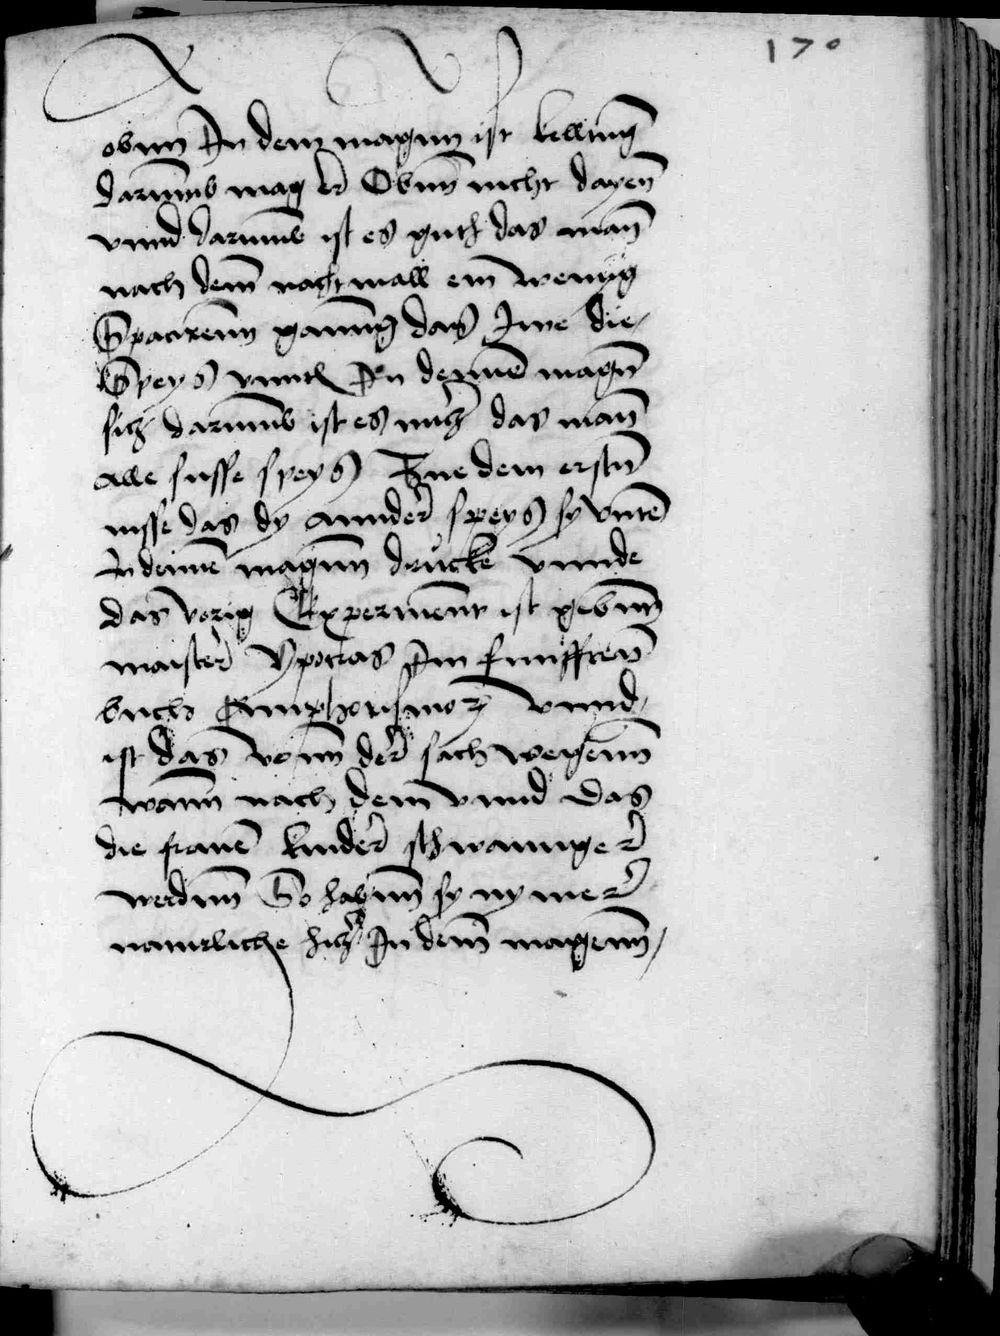 170
obnn In dem magnn ist kelltung
darumb mag er Obnn nicht dayen
vnnd darumb ist es guth das man
nach dem nachtmall ein wenyg
Spacirenn ganng das Ime die
Speys vnnth In deyme magn
sich darumb ist es nutz das man
alle susse speys Zue dem erstn
nisse das dy annder speys sy vnten
In deinne magnn drucke vnnde
das vorig Experment ist gebnn
maister Ypocras Im funfften
buchs Amphorismorum vnnd
ist das vonn der sach wegenn
wann nach dem vnnd das
die frauen kinder schwannger
werdnn So habnn sy ny mer
naturliche hitz In dem magenn